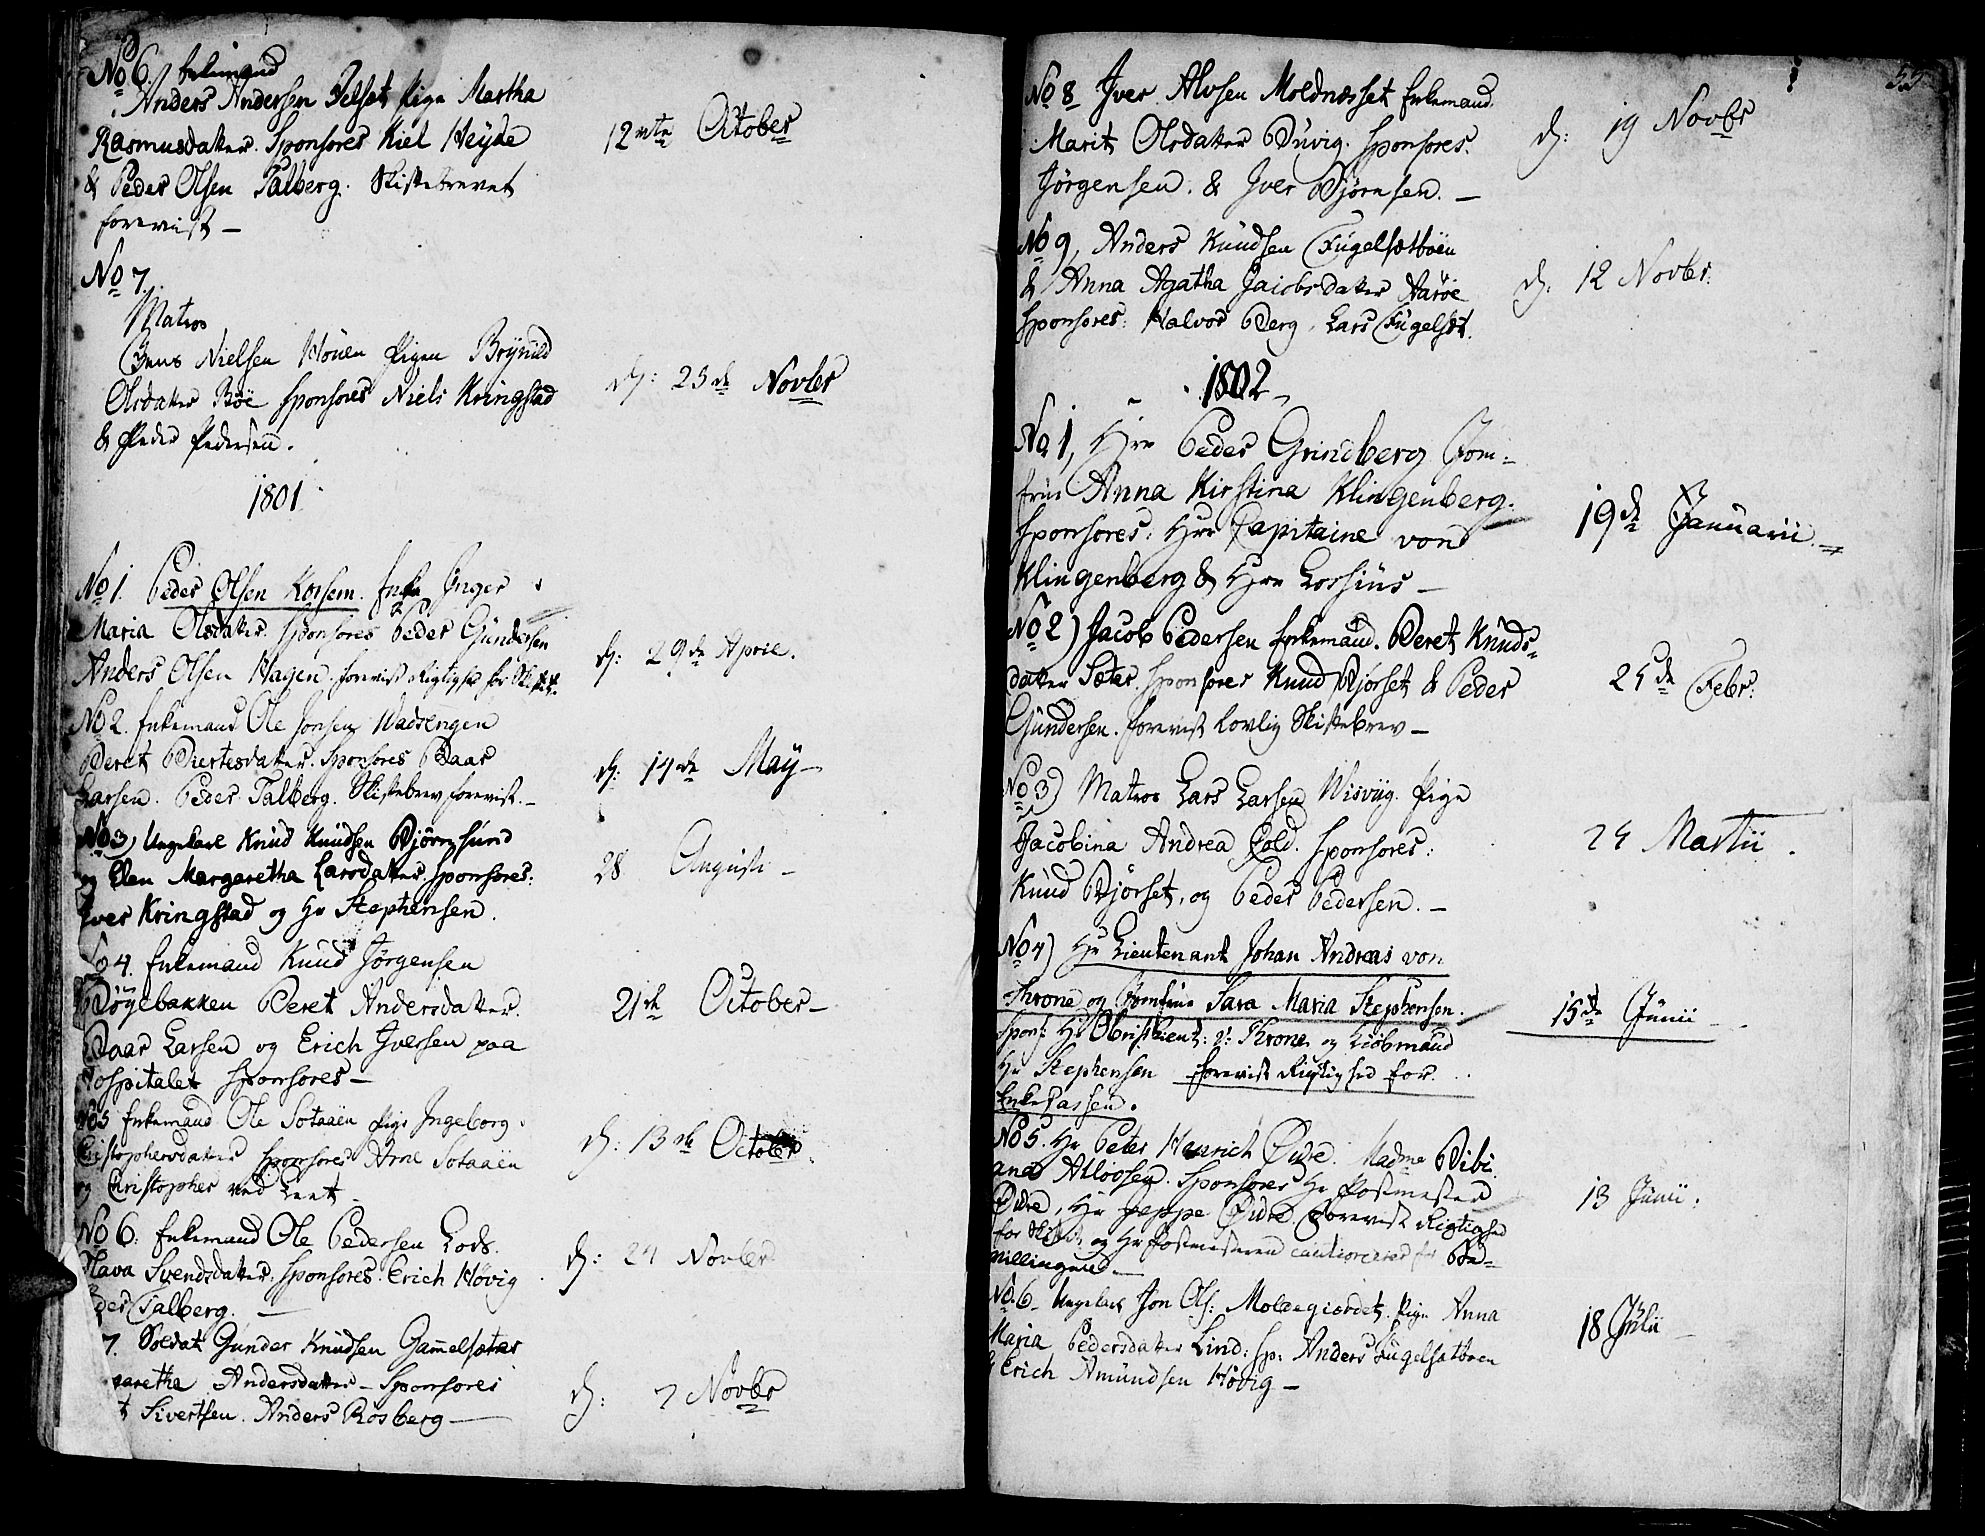 No 6. Enkemand
Anders Andersen Jelset Pige Martha
Rasmusdatter. Sponsores Kiel Heyde
& Peder Olsen Talberg. Skiftebrevet
forevist –
12te October
No 7.
Matros
Jens Nielsen Houen Pigen Brynild
Olsdatter Böe Sponsores Niels Kringstad
& Peder Pedersen.
d: 23de Novbr
1801
No 1. Peder Olsen Korsem. Enke Inger
Maria Olsdatter. Sponsores Peder Gundersen
Anders Olsen Hagen. forevist Rigtighed for Skiftet.
d: 29de April.
No 2. Enkemand Ole Jonsen Wadsengen
Beret Biertesdatter. Sponsores Baar
Larsen. Peder Talberg. Skiftebrev forevist. –
d: 14de May –
No 3) Ungekarl Knud Knudsen Björnsund
og Elen Margaretha Larsdatter. Sponsores:
Iver Kringstad og Hr Stephensen.
28 Augusti –
No 4. Enkemand Knud Jörgensen
Böyebakken Beret Andersdatter.
Baar Larsen og Erich Iversen paa
Hospitalet Sponsores –
21de October –
No 5 Enkemand Ole Sotaaen Pige Ingeborg
Christophersdatter Sponsores Arne Sotaaen
og Christopher ved
d: 13de October.
No 6: Enkemand Ole Pedersen Lods.
Hava Svendsdatter. Sponsores. Erich Hövig
Talberg. –
d: 24 Novber
7. Soldat Gunder Knudsen Gammelsæter
garetha Andersdatter – Sponsores
Sivertsen. Anders Rosberg –
d: 7 Novbr
No 8 Iver Alvsen Moldnæsset Enkemand.
Marit Olsdatter Buvig. Sponsores.
Jörgensen. & Iver Björnsen. –
d: 19 Novbr
No 9, Anders Knudsen Fugelsætböen
& Anna Agatha Jacobsdatter Aaröe
Sponsores: Halvor Berg. Lars Fugelset.
d: 12 Novbr.
1802
No 1, Herr Peder Grindberg Jom-
frue Anna Kirstina Klingenberg.
Sponsores. Herr Capitaine von
Klingenberg & Herr Lossius –
19de Januarii. –
No 2) Jacob Pedersen Enkemand. Beret Knuds-
datter Sæter. Sponsores Knud Björset & Peder
Gundersen. forevist lovlig Skiftebrev –
25de Febr:
No 3) Matros Lars Larsen Wisviig. Pige
Jacobina Andrea Cold. Sponsores:
Knud Björset, og Peder Pedersen. –
24 Martii.
No 4) Hr Lieutenant Johan Andreas von
Throne og Jomfrue Sara Maria Stephensen.
Spons: Hr Obristlieut: v: Throne og Kiöbmand
Hr Stephensen forevist Rigtighed for
EnkeCassen.
15de Junii –
No 5. Hr Peter Henrich Öidre. Madme Bibi
ana Alloosen. Sponsores Hr Postmester
Öidre, Hr Jeppe Öidre. Forevist Rigtighed
for Skiftet og Hr Postmesteren cautionerer for Be-
villingerne –
13 Junii.
No 6 – Ungekarl Jon Ols: Moldegiærdet. Pige Anna
Maria Pedersdatter Lind: sp: Anders Fugelsætböen
& Erich Amundsen Hövig –
18 Julii –